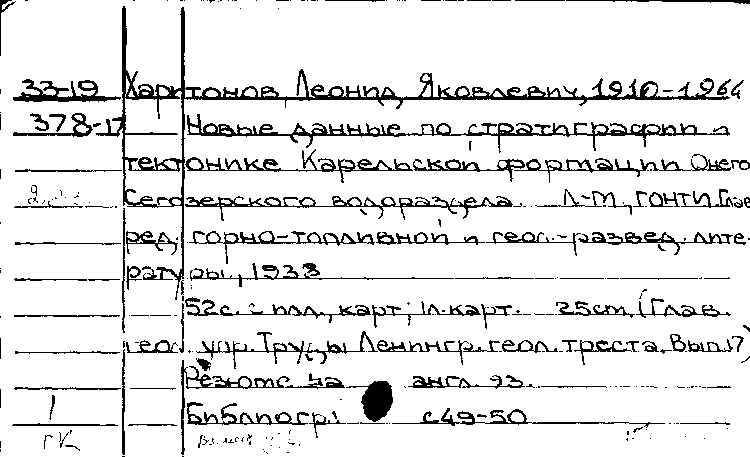 33-19 Харитонов, Леонид Яковлевич, 1910-1964
378-17 Новые данные по стратиграфии и
тектонике Карельской формации Онего
Сегозерского водораздела. Л-М, ГОНТИ. Глав
ред. горно-топливной и геол.-развед. лите-
ратуры, 1938
52с. с илл., карт; 1л.карт. 25cm. (Глав.
геол. упр. Труды Ленингр. геол. треста. Вып.17)
Резюме на англ. яз.
1 Библиогр: с49-50
ГК